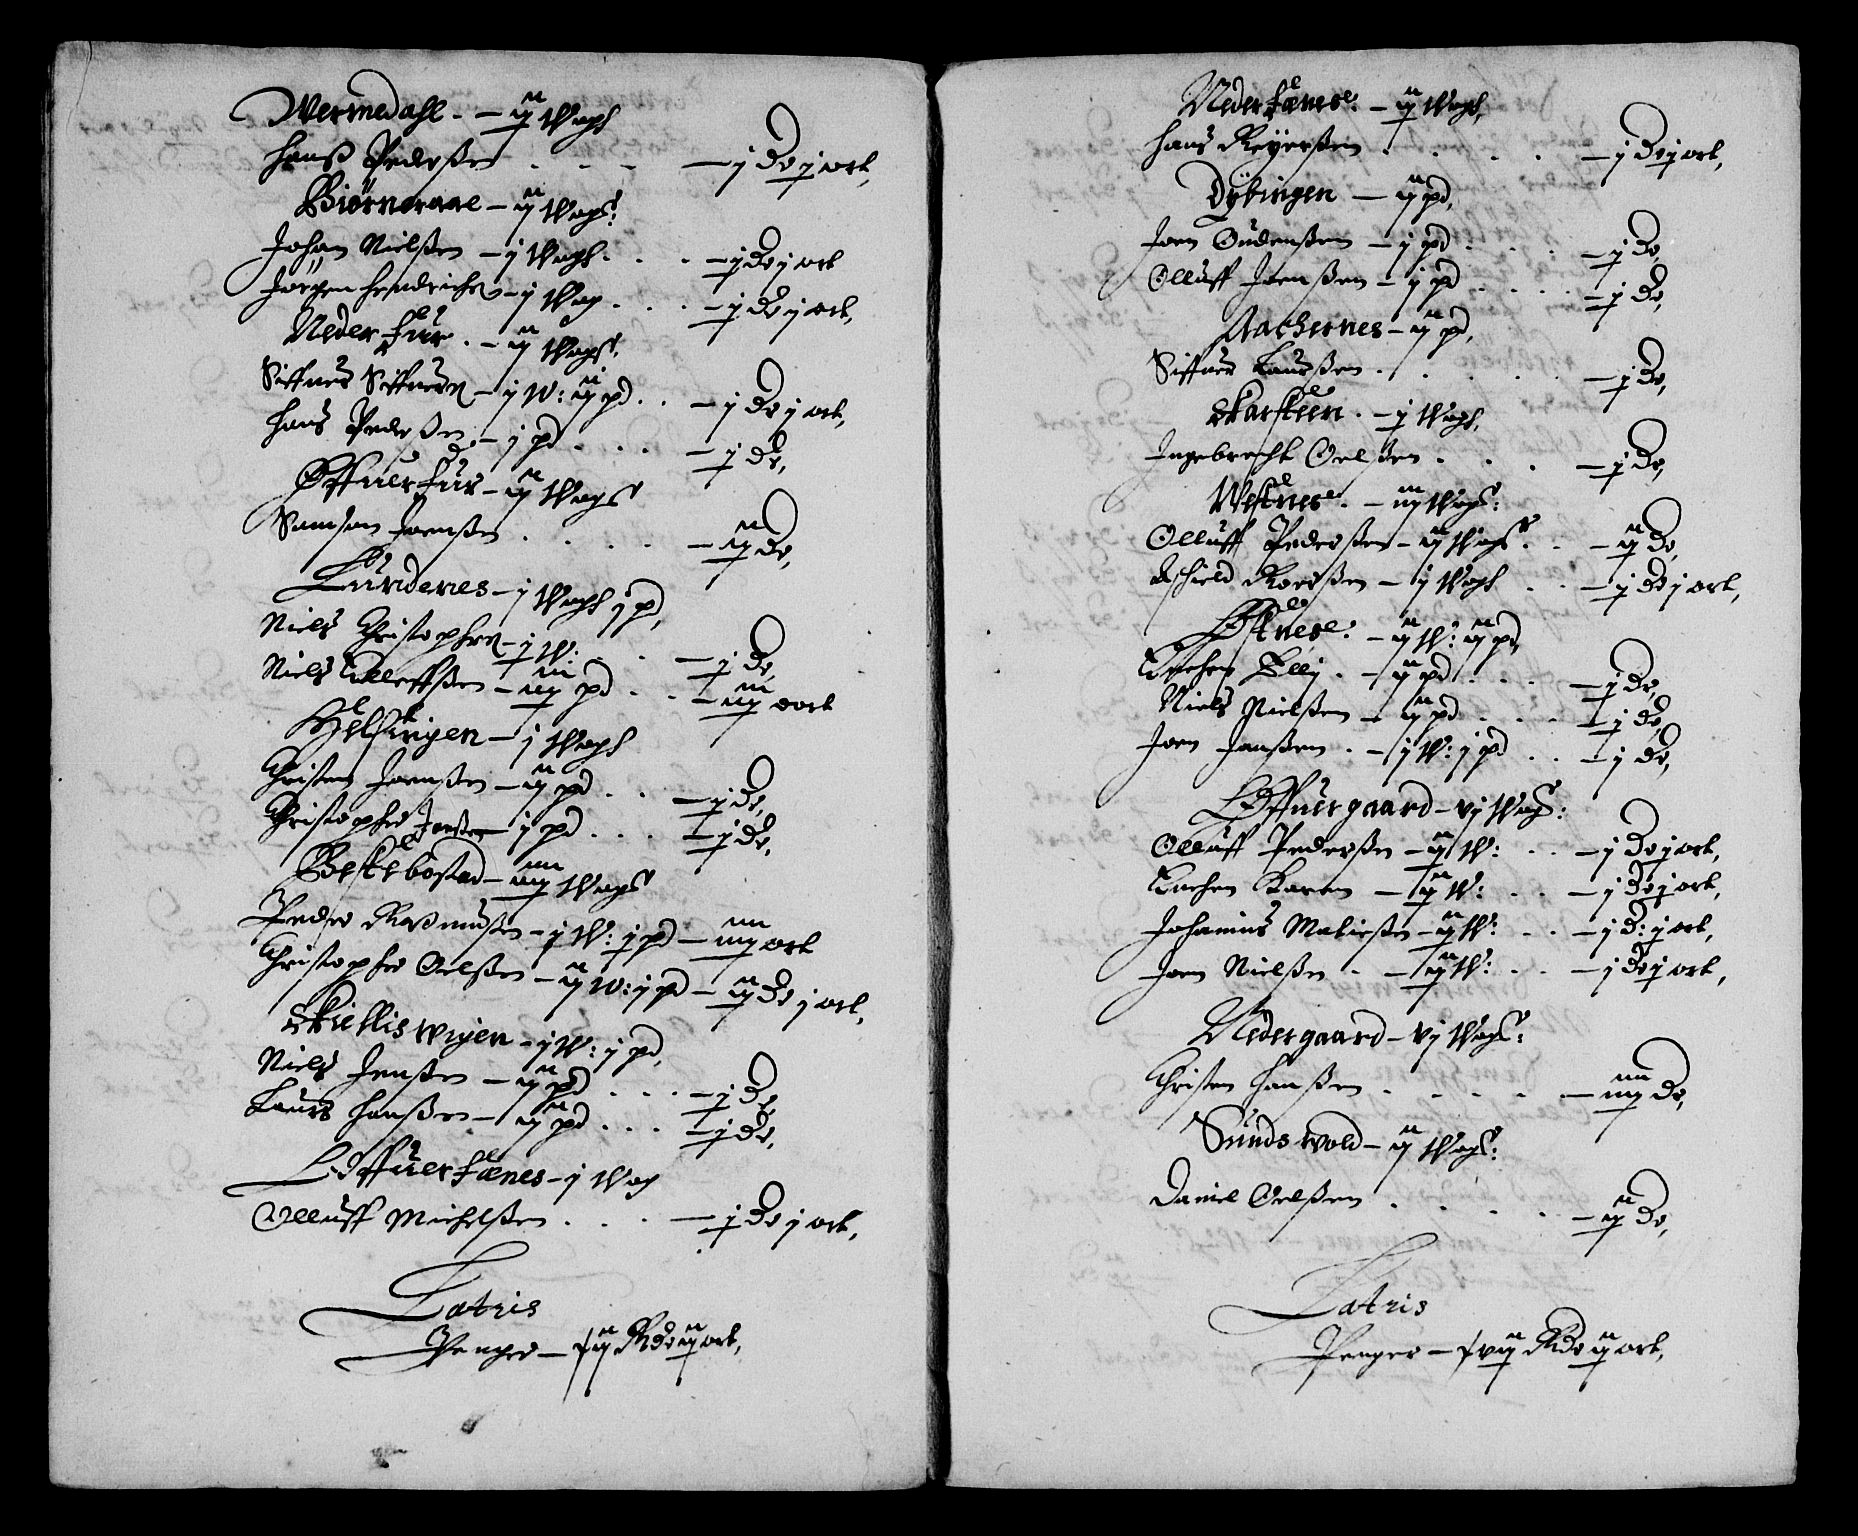 Wermedahl. – ij Wogh
Hans Pederßen . . . – j dr j ort,
Biörneraae – ij Wogs:
Johan Nielßen – j Wogh. . . – j dr j ort
Jörgen Hendrichs – j Wog . . . – j dr j ort,
Neder Fur. – ij Wogs,
Siffuer Siffuers – j W: ij pd . . – j dr j ort,
Hans Pederßen – j pd . . . – j dr,
Offuer Fur – ij Wogs
Samson Joenßen . . . . – ij dr,
Lundenes – j Wogh j pd,
Niels Christophers – j W: . . – j dr,
Niels Olleffßen – iij pd . . – iij ort
Helsingen – j Wogh
Christen Joenßen – ij pd . . – j dr,
Christopher Jenßen – j pd . . . – j dr,
Bestebostad – iiij Wogs
Peder Raßmußen – j W: j pd – iiij ort
Christopher Oelßen – ij W: j pd – ij dr j ort,
Skiellis wigen – j W: j pd,
Niels Jenßen – ij pd . . . – j dr,
Laurs Hanßen – ij pd . . . – j dr,
Offuer Fænes – j Wog
Olluff Michelßen . . . – j dr j ort,
Latris
Penger – xxij Rdr ij ort,
Neder Fænes. – ij Wogh,
Hans Reyerßen . . . . – j dr j ort,
Dybingen – ij pd,
Joen Oudenßen – j pd . . . – j dr,
Olluff Joenßen – j pd . . . . – j dr,
Aachernes – ij pd,
Siffuer Laurßen . . . . – j dr,
Skarsteen. – j Wogh,
Ingebrecht Oelßen . . . – j dr,
Westnes. – iij Wogs:
Olluff Pederßen – ij Wogs . . – ij dr,
Roerßen – j Wogh . . – j dr j ort,
Østnes. – ij W: ij pd,
Enchen Elli . – ij pd . . . – j dr,
Niels Nielßen – ij pd . . . – j dr,
Joen Janßen . – j W: j pd . . – j dr,
Offuergaard – vj Wogs:
Olluff Pederßen – ij W: . . – j dr j ort,
Enchen Karen – ij W: . . – j dr j ort,
Johannis Matießen – ij W: . . – j dr j ort,
Joen Nielßen . – ij W: . . – j dr j ort,
Nedergaard – vj Wogs:
Christen Hanßen . . . . – iiij dr,
Sundswold – ij Wogs:
Daniel Oelßen . . . . – ij dr,
Latris
Penger – xvij Rdr ij ort,